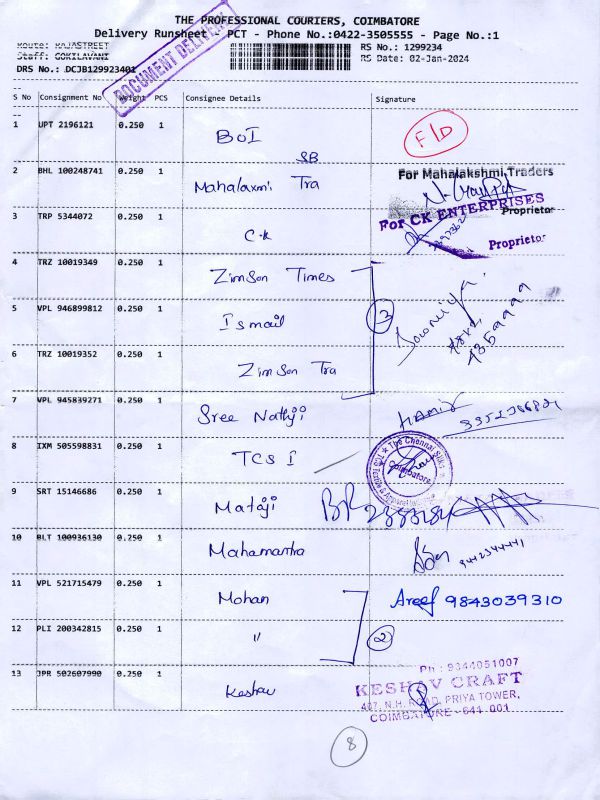 THE PROFESSIONAL COURIERS, COIMBATORE
Delivery Runsheet - PCT - Phone No.:0422-3505555 - Page No.:1
Route: RAJASTREET RS No.: 1299234
Staff: GOKILAVANI RS Date: 02-Jan-2024
DRS No.: DCJB129923401
DOCUMENT DELIVERY
S No Consignment No Weight PCS Consignee Details Signature
1 UPT 2196121 0.250 1 BOI SB F/D
2 BHL 100248741 0.250 1 Mahalaxmi Tra For Mahalakshmi Traders
Proprietor
3 TRP 5344072 0.250 1 C-K For CK ENTERPRISES
Proprietor
4 TRZ 10019349 0.250 1 Zimson Times
5 VPL 946899812 0.250 1 Ismail 3
6 TRZ 10019352 0.250 1 Zimson Tra
7 VPL 945839271 0.250 1 Sree Nathji
8 IXM 505598831 0.250 1 TCS I The Chennai Silks
Coimbatore
9 SRT 15146686 0.250 1 Mataji
10 BLT 100936130 0.250 1 Mahamantra
11 VPL 521715479 0.250 1 Mohan Areef 9843039310
12 PLI 200342815 0.250 1 " 2
13 JPR 502607990 0.250 1 Keshav Ph : 9344051007
KESHAV CRAFT
407, N.H. ROAD, PRIYA TOWER,
COIMBATORE - 641 001
8